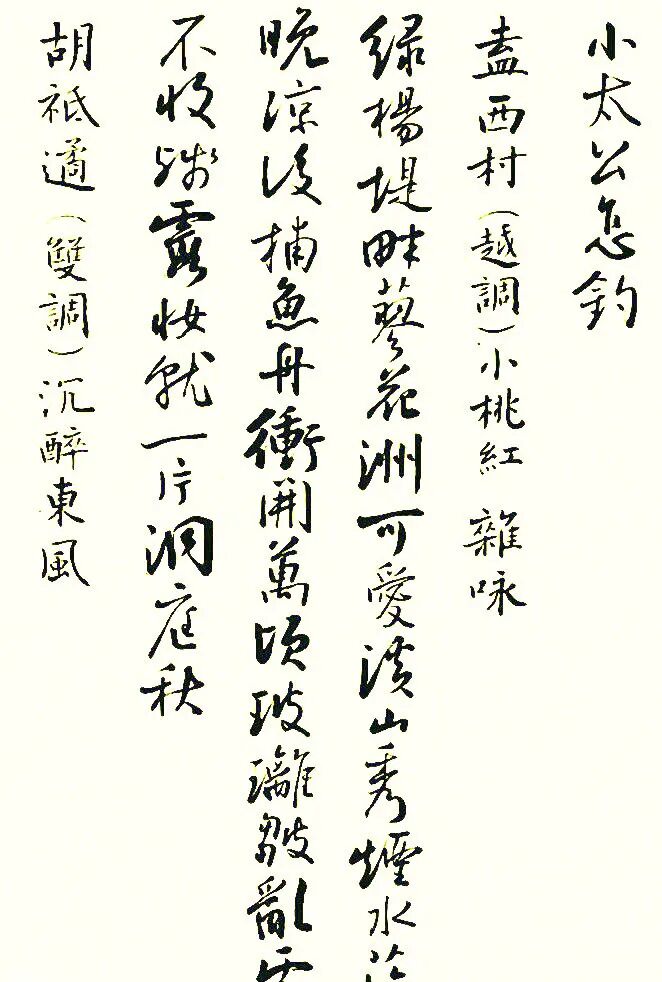 小太公怎釣
盍西村（越調）小桃紅 雜咏
綠楊堤畔蓼花洲可愛溪山秀煙水
晚涼後捕魚舟衝開萬頃玻璃皺亂
不收殘霞妝就一片洞庭秋
胡祗遹（雙調）沉醉東風